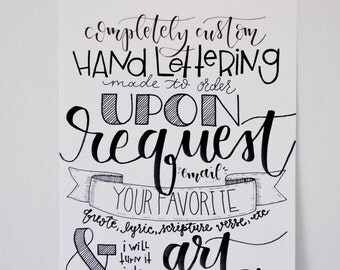 completely custom
HAND LETTERING
made to order
UPON
request
email
YOUR FAVORITE
quote, lyric, scripture verse, etc
& i will
turn it
art